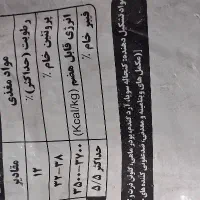 مواد تشکیل دهنده: کنجاله سویا، آرد گندم، پودر ماهی، گلوتن ذرت و
(مکمل های ویتامینه و معدنی، ضدعفونی کننده های
مواد مغذی
مقادیر
رطوبت (حداکثر) %
۱۲
پروتئین خام %
۳۲-۳۸
انرژی قابل هضم (Kcal/kg)
۲۵۰۰-۳۷۰۰
فیبر خام %
حداکثر ۵/۵